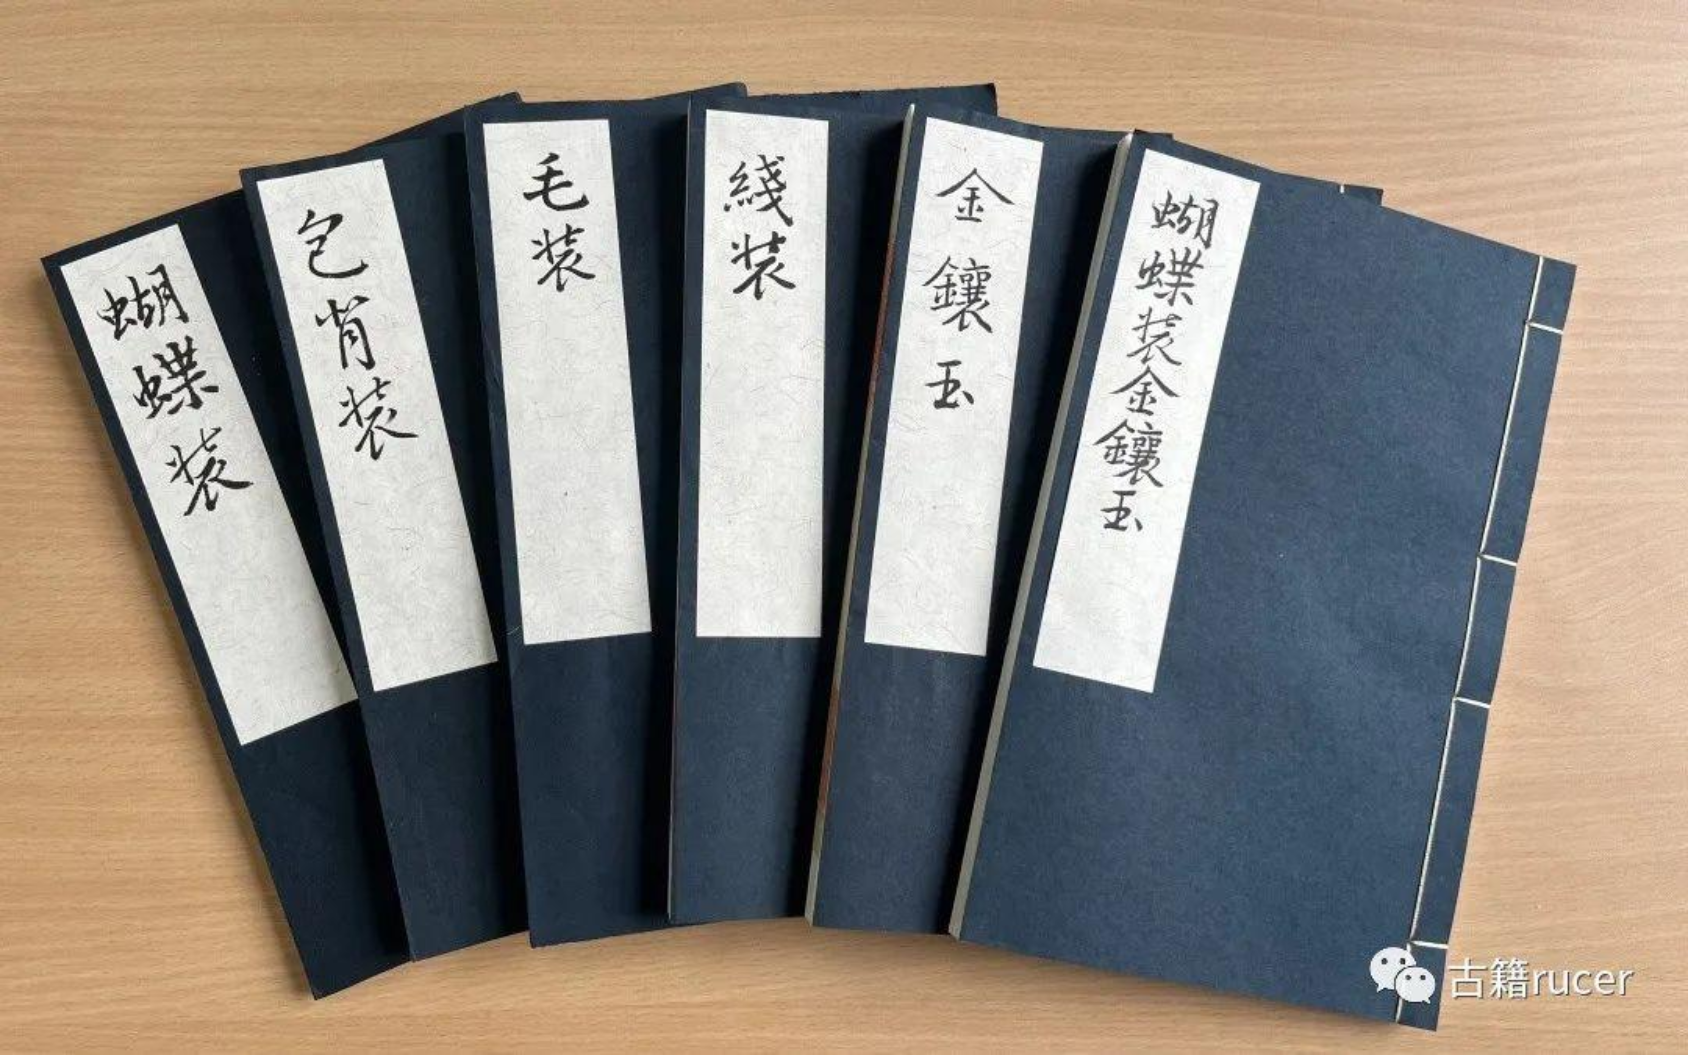 蝴蝶装
包背装
毛装
綫装
金鑲玉
蝴蝶装金鑲玉
古籍rucer